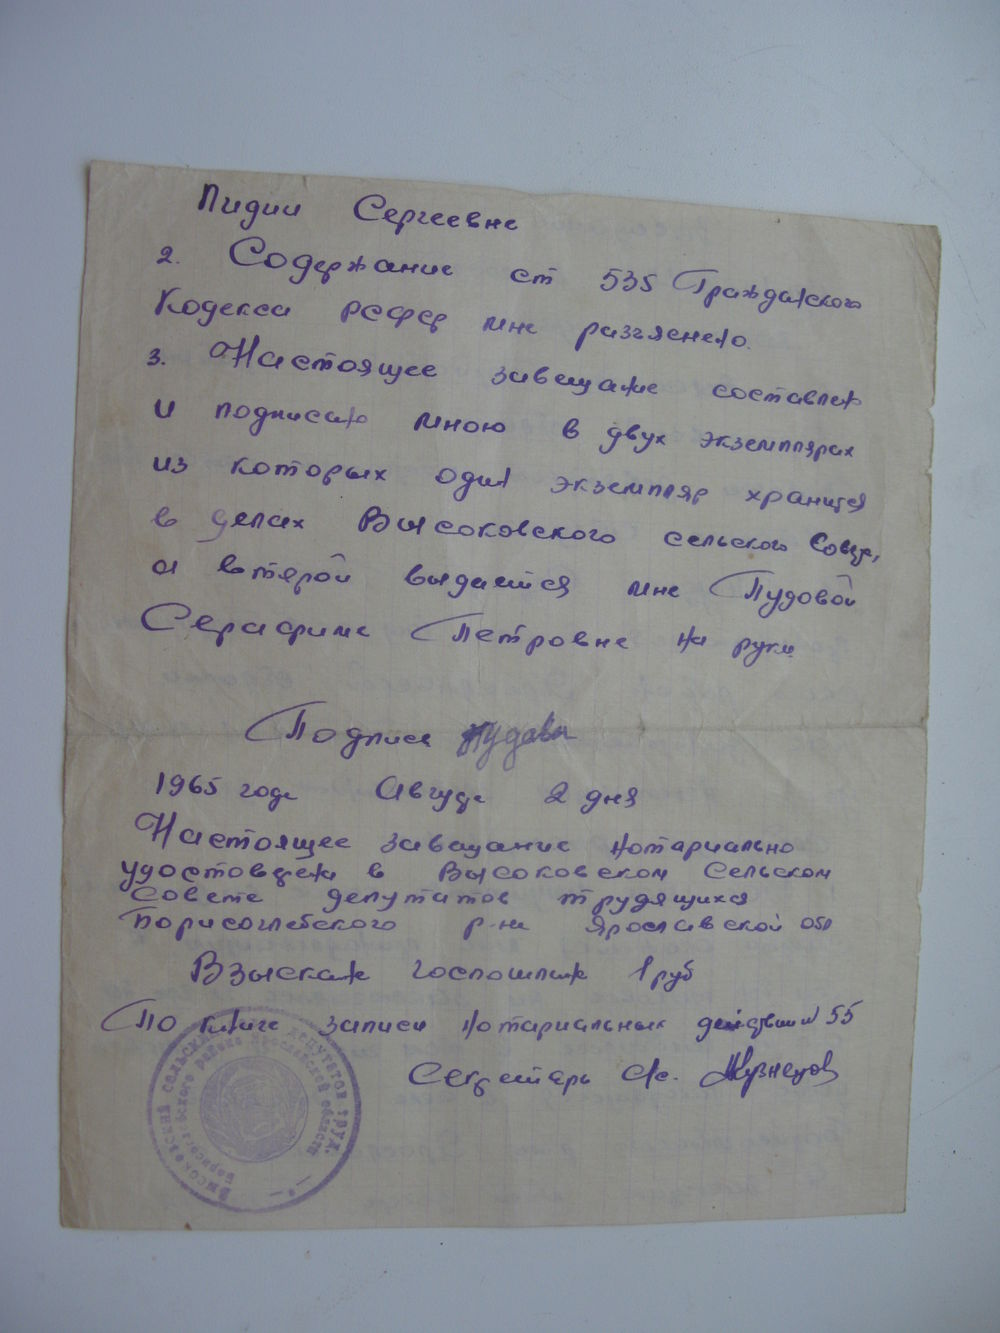 Лидии Сергеевне
2. Содержание ст 535 Гражданского
Кодекса РСФСР мне разъяснено.
3. Настоящее завещание составлен
и подписан мною в двух экземплярах
из которых один экземпляр хранится
в делах Высоковского сельского Совета,
а второй выдается мне Пудовой
Серафиме Петровне на руки
Подпись Пудова
1965 года Августа 2 дня
Настоящее завещание нотариально
удостоверен в Высоковском Сельском
Совете депутатов трудящихся
Борисоглебского р-на Ярославской обл
Взыскан госпошлин 1 руб
По книге записи нотариальных действий N 55
Секретарь с/с. Кузнецов
Высоковский сельский депутатов труд.
Борисоглебского района Ярославской области